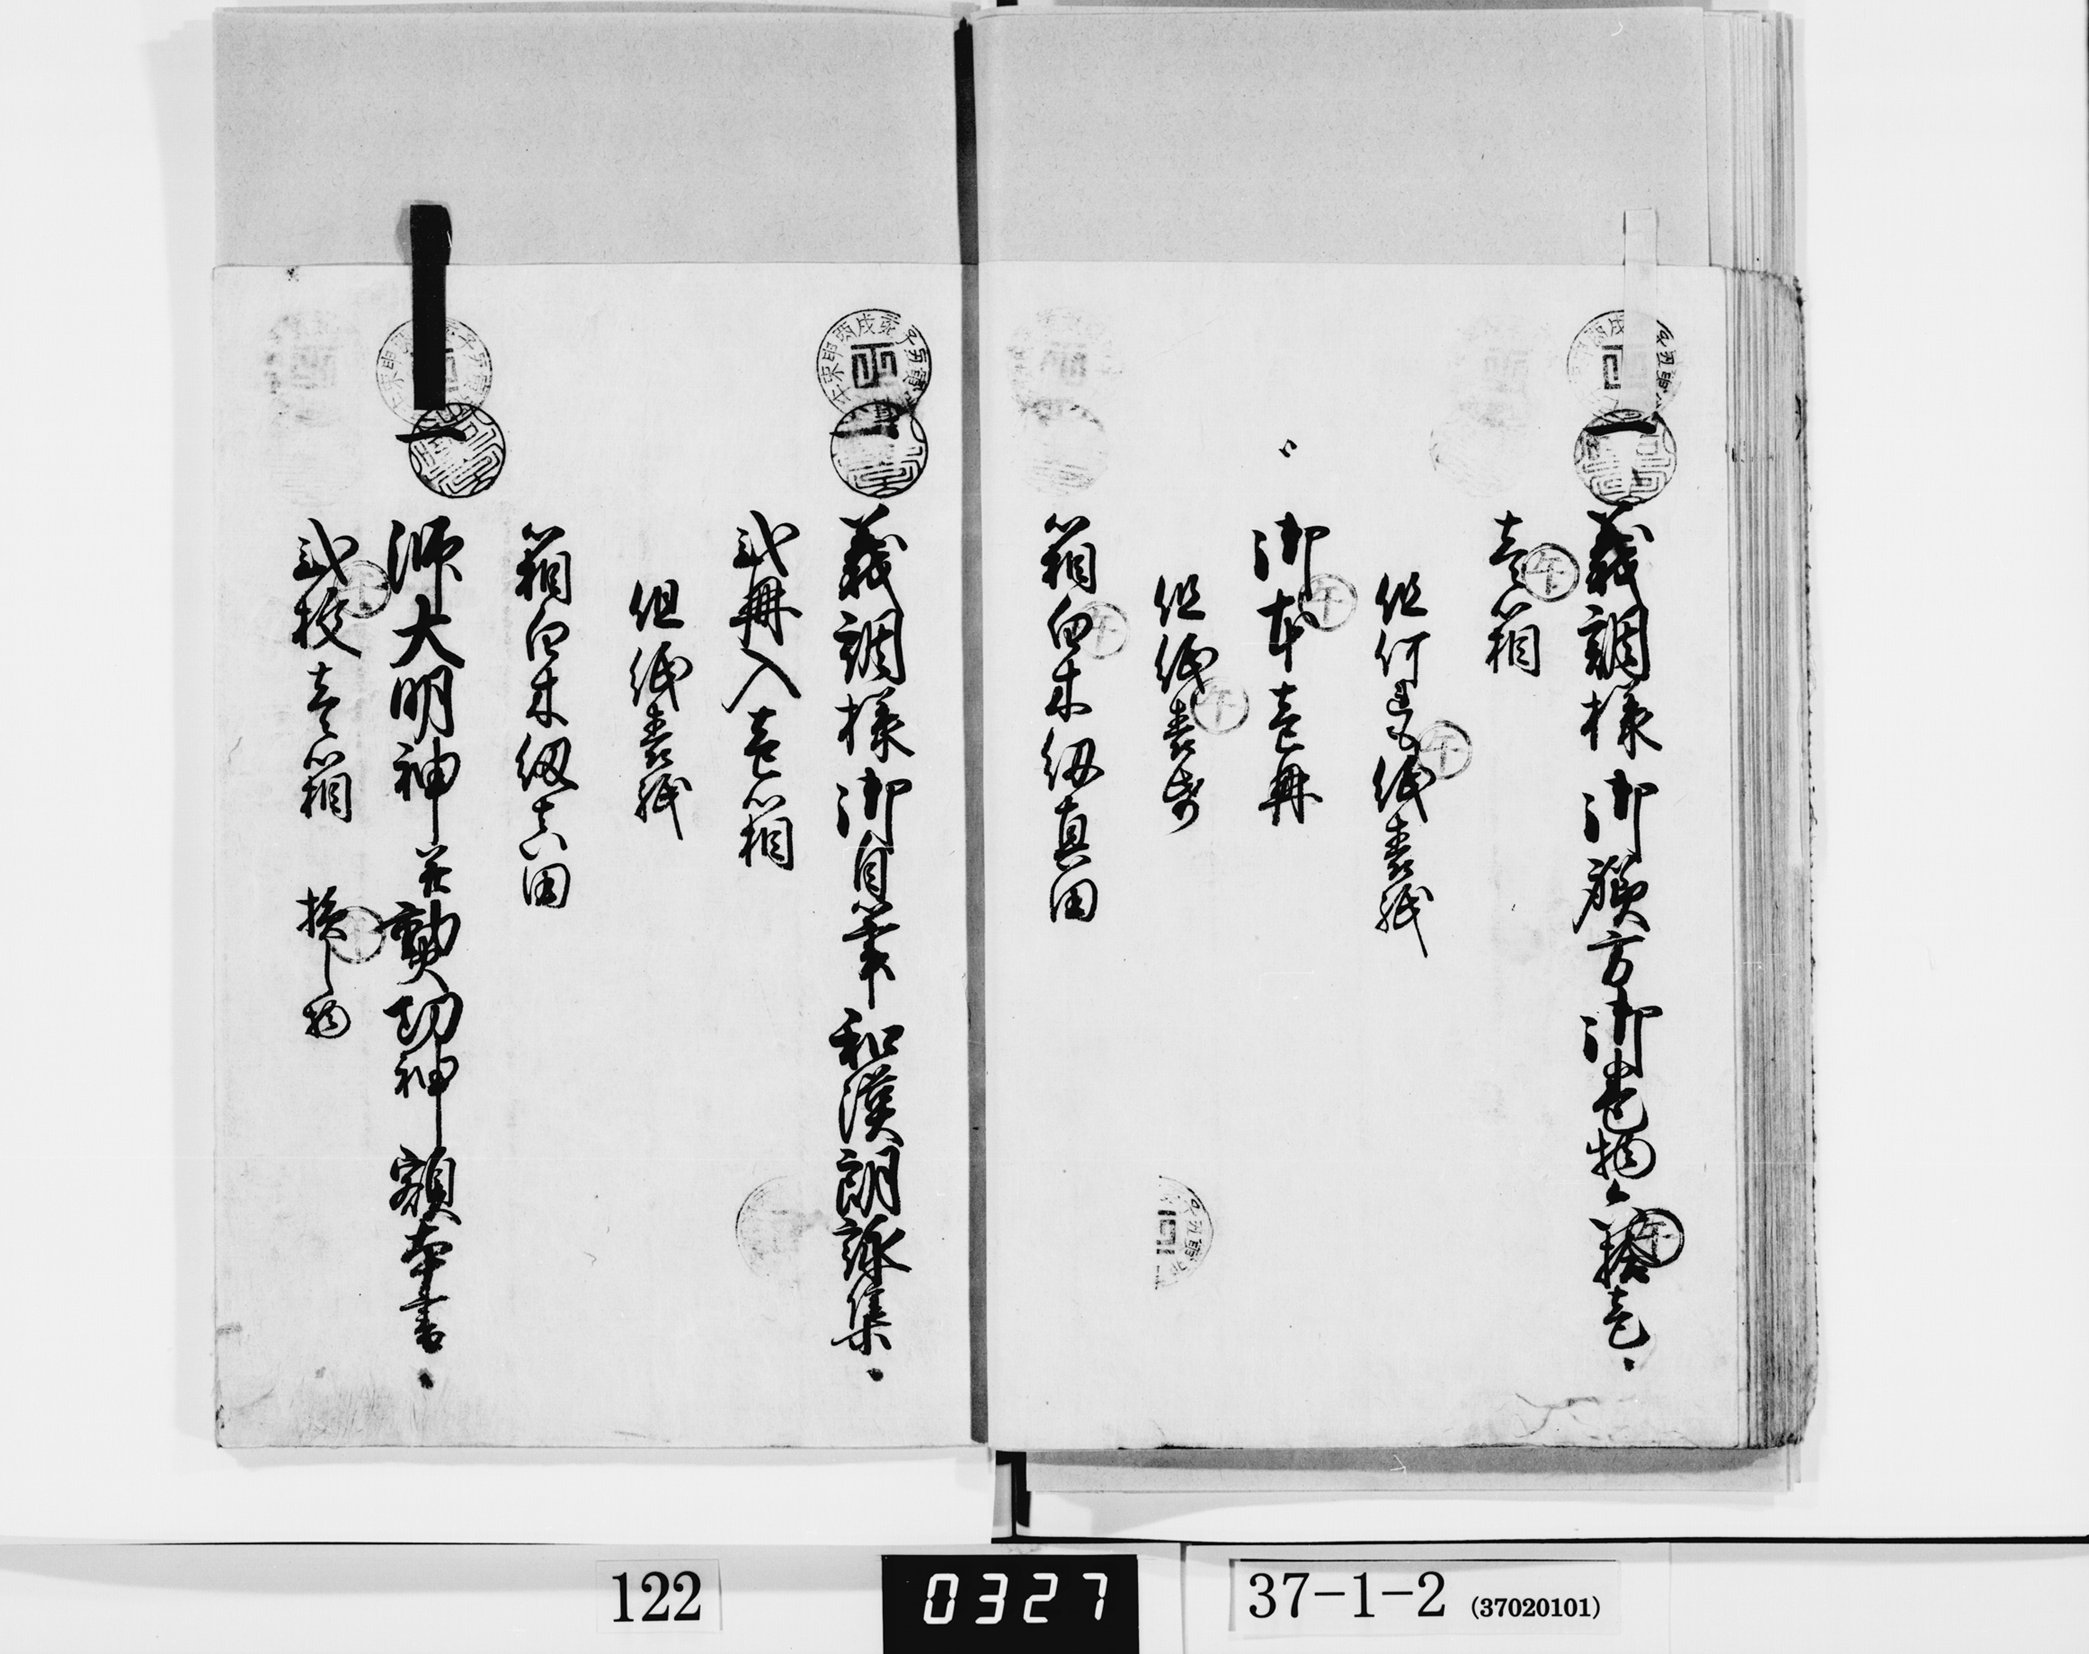 一 義調様御願方御巻物六拾壱
壱箱
但何も紙表紙
御本壱冊
但紙表紙
箱白木紐真田
一 義調様御自筆和漢朗詠集
弐冊入壱箱
但紙表紙
箱白木紐真田
一 師大明神并勲功神額本書
弐枚壱箱 掛物
午
午
午
午
午
午
午
午
122
0327
37-1-2 (37020101)